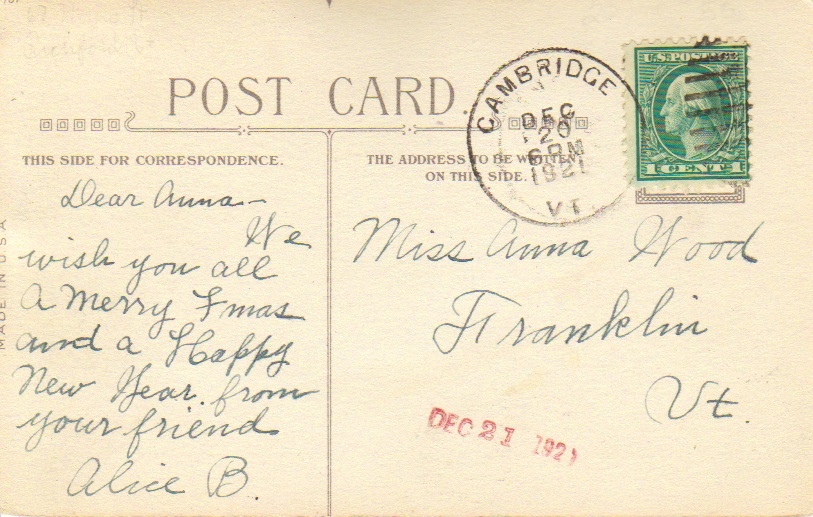 POST CARD
THIS SIDE FOR CORRESPONDENCE.
THE ADDRESS TO BE WRITTEN
ON THIS SIDE.
CAMBRIDGE
DEC
20
6 PM
1921
VT.
U.S. POSTAGE
1 CENT 1
MADE IN U.S.A
Dear Anna—
We
wish you all
A Merry Xmas
and a Happy
New Year. from
your friend
Alice B
Miss Anna Wood
Franklin
Vt.
DEC 21 1921